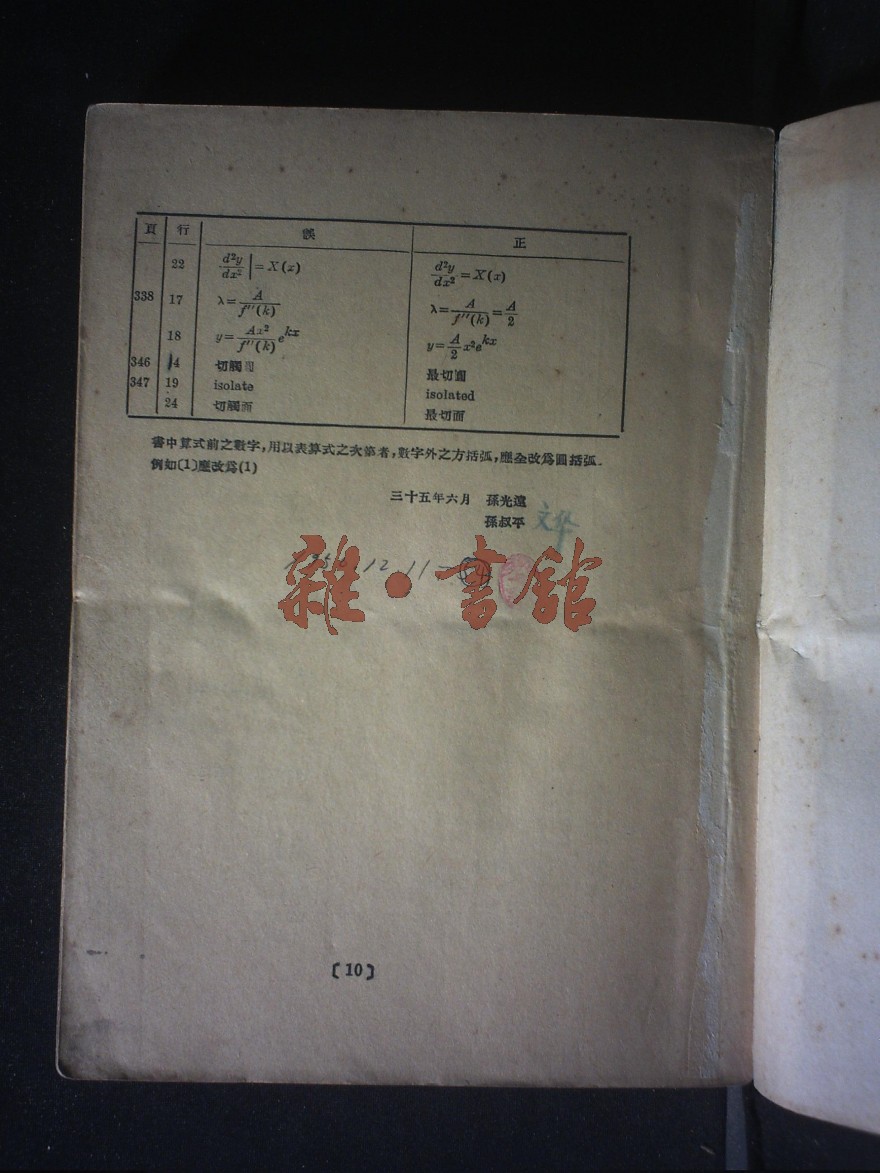 頁 行 誤 正
22 d²y/dx² |=X(x) d²y/dx²=X(x)
338 17 λ=A/f''(k) λ=A/f''(k)=A/2
18 y=Ax²/f''(k) e^kx y=A/2 x²e^kx
346 14 切觸圓 最切圓
347 19 isolate isolated
24 切觸面 最切面
書中算式前之數字,用以表算式之次第者,數字外之方括弧,應全改爲圓括弧.
例如〔1〕應改爲(1)
三十五年六月 孫光遠
孫叔平 文华
雜·書館
〔10〕